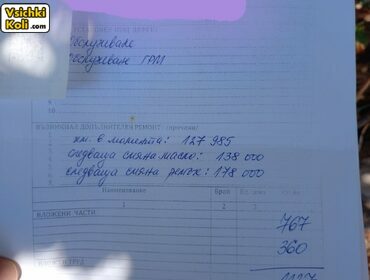 Vsichki
Koli.com
обслужване
обслужване ГРМ
10
ВЪЗНИКНАЛ ДОПЪЛНИТЕЛЕН РЕМОНТ: (причини)
км. в момента: 127 985
следваща смяна масло: 138 000
следваща смяна ремък: 178 000
Наименование Брой Ед. цена
1 2
ВЛОЖЕНИ ЧАСТИ
767
360
ТРУД
1127